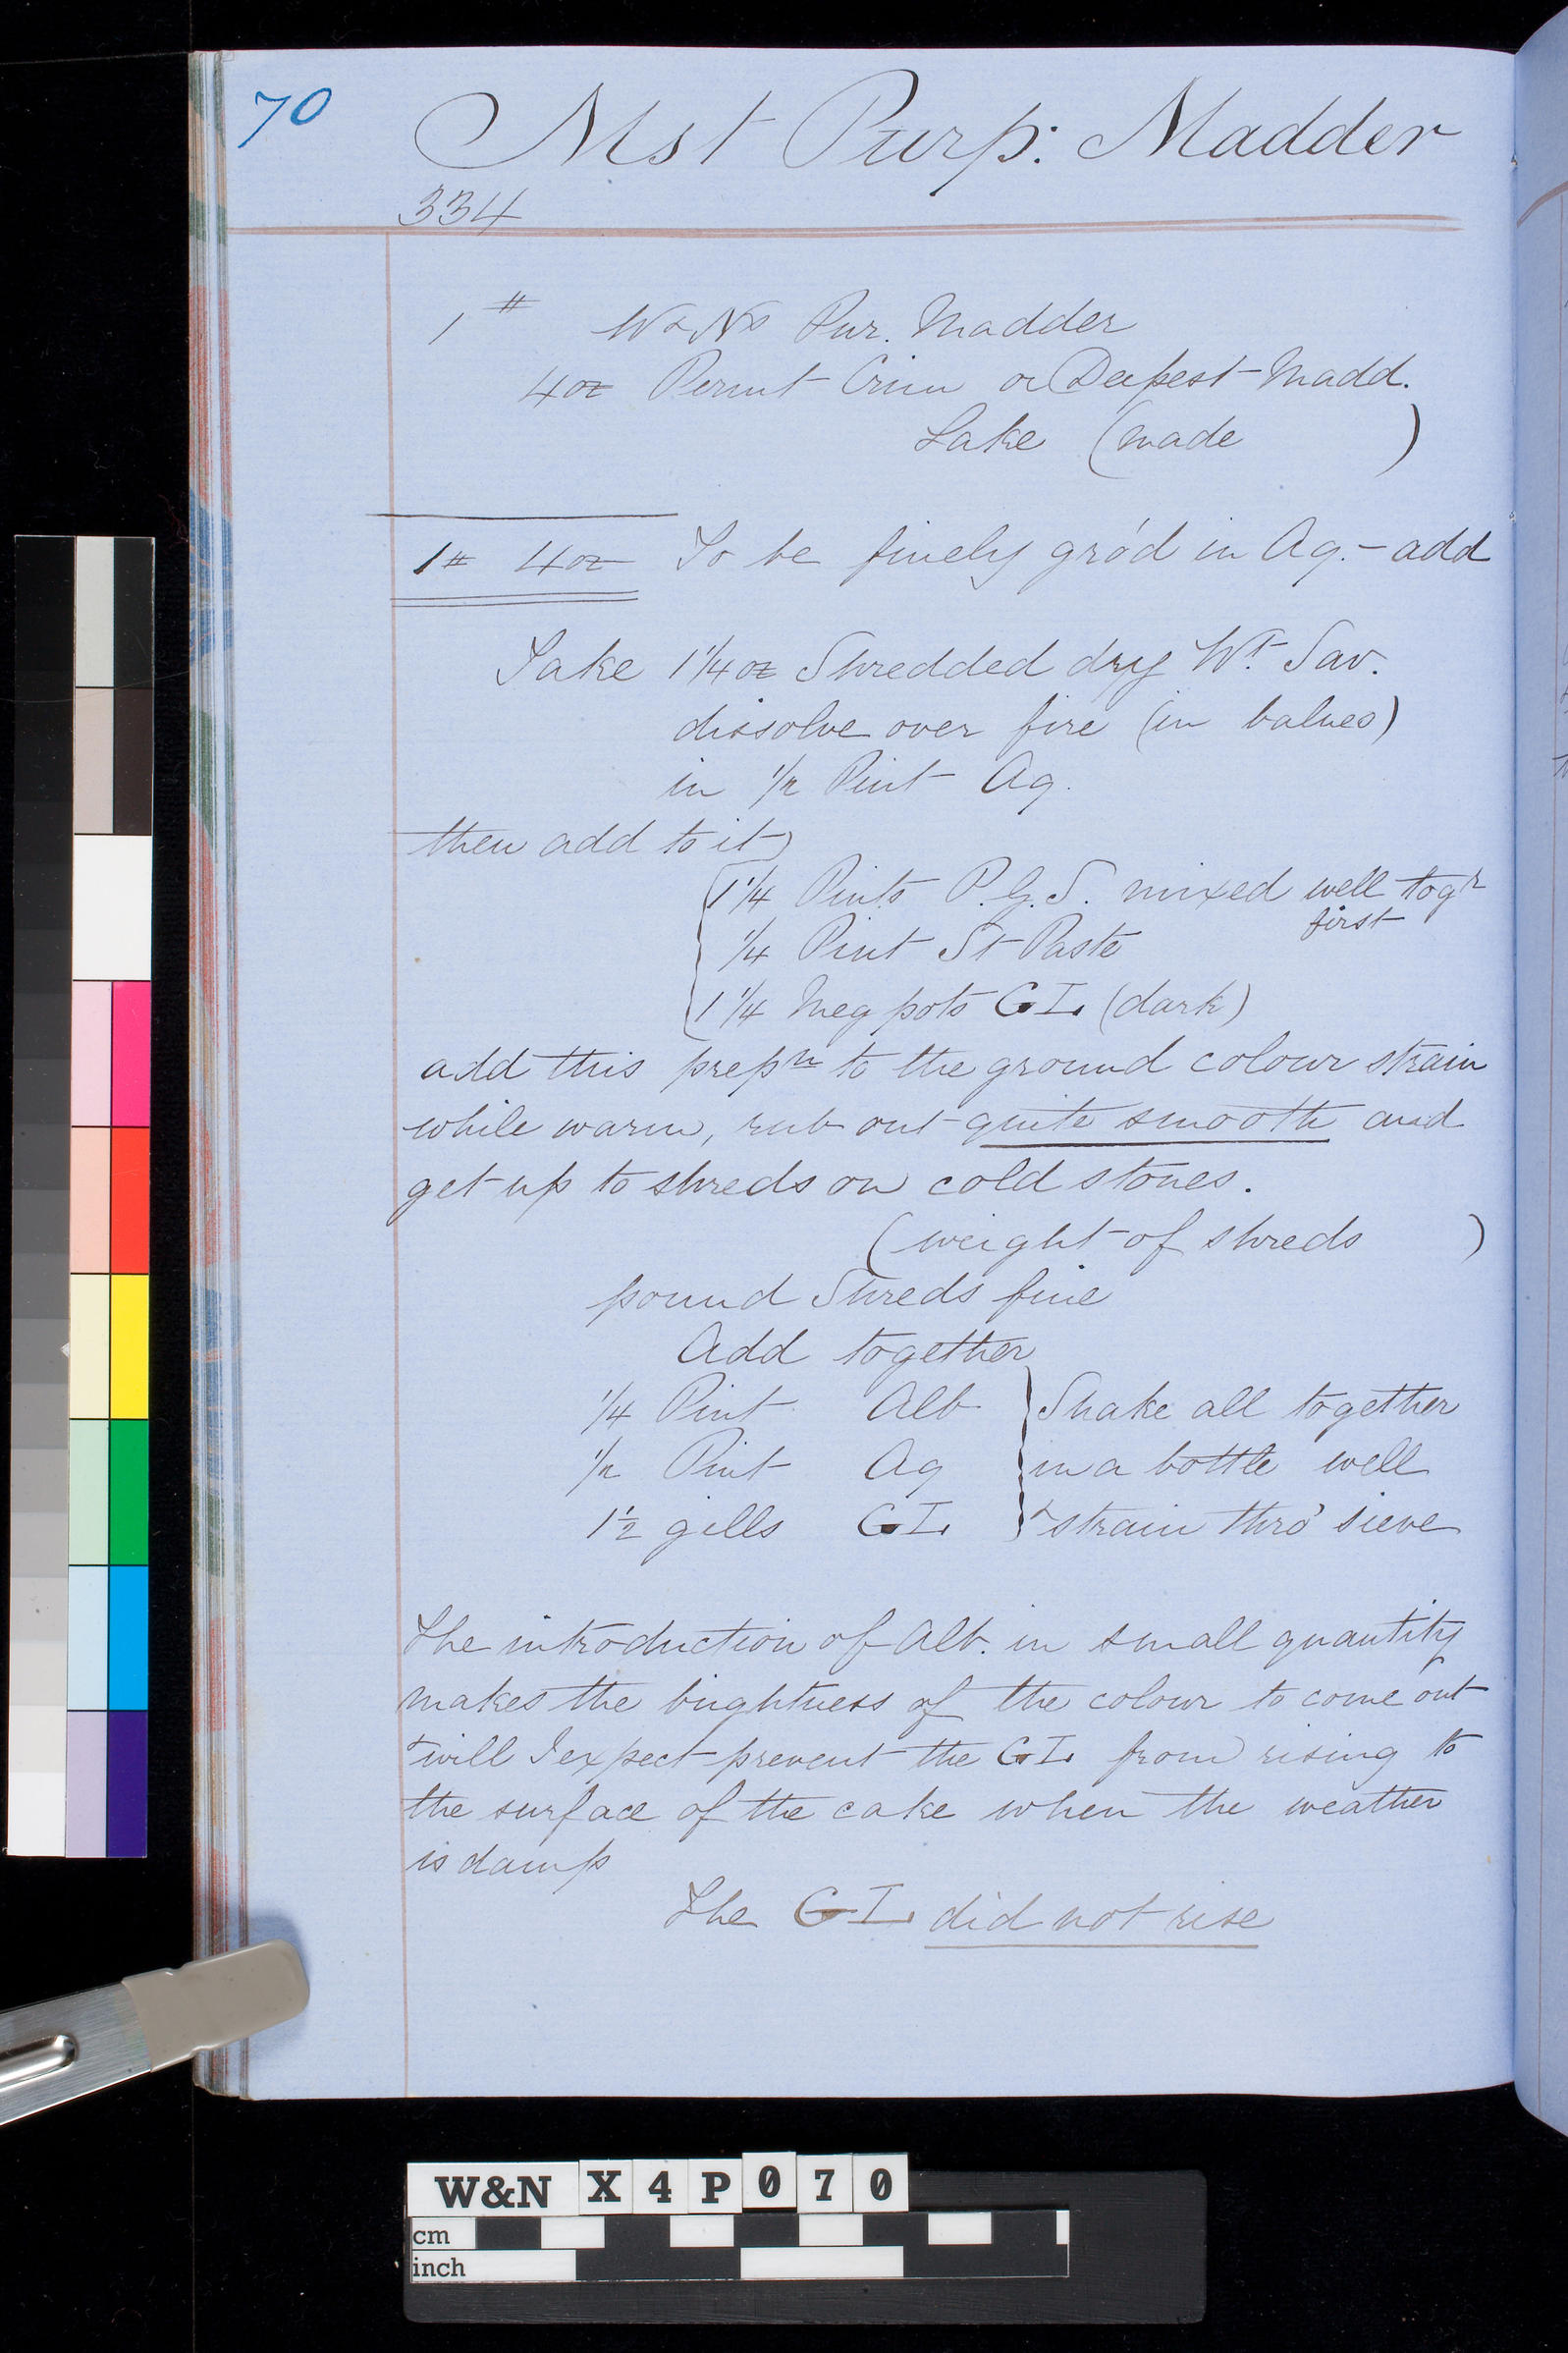 70
Mst Purp: Madder
334
1 # W & Ns Pur. Madder
4oz Permt Crim or Deepest Madd.
Lake (made )
1# 4oz To be finely gro'd in Aq. - add
Take 1 1/4 oz Shredded dry Wt Sav.
dissolve over fire (in balneo)
in 1/2 Pint Aq.
then add to it
1 1/4 Pints P.G.S. mixed well togr
first
1/4 Pint St Paste
1 1/4 Meg pots GL (dark)
add this prepn to the ground colour strain
while warm, rub out quite smooth and
get up to shreds on cold stones.
(weight of shreds )
pound Shreds fine
Add together
1/4 Pint Alb } Shake all together
1/2 Pint Aq } in a bottle well
1 1/2 gills GL } & strain thro' sieve
The introduction of Alb. in small quantity
makes the brightness of the colour to come out
& will I expect prevent the GL from rising to
the surface of the cake when the weather
is damp
The GL did not rise
W&N X4P070
cm
inch